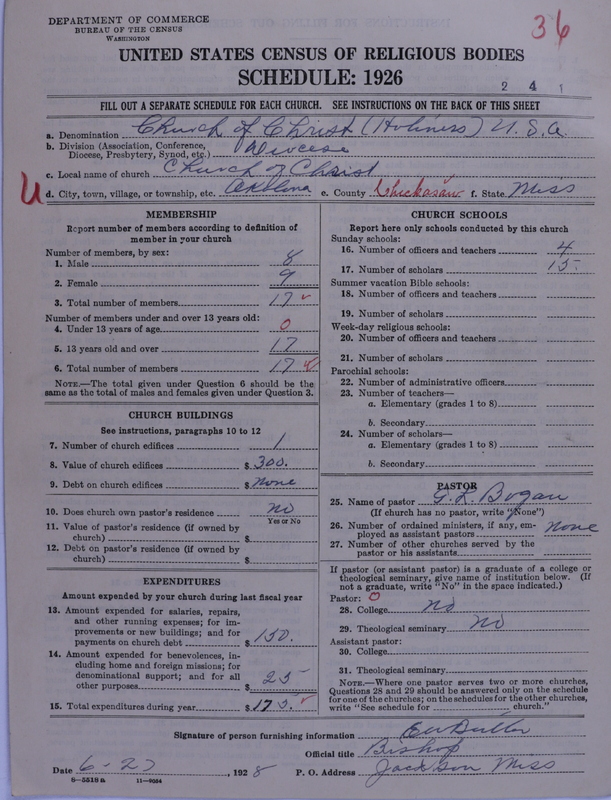 DEPARTMENT OF COMMERCE
BUREAU OF THE CENSUS
WASHINGTON
36
UNITED STATES CENSUS OF RELIGIOUS BODIES
SCHEDULE: 1926
2 4 1
FILL OUT A SEPARATE SCHEDULE FOR EACH CHURCH. SEE INSTRUCTIONS ON THE BACK OF THIS SHEET
a. Denomination Church of Christ (Holiness) U.S.A.
b. Division (Association, Conference,
Diocese, Presbytery, Synod, etc.) Diocese
c. Local name of church Church of Christ
U d. City, town, village, or township, etc. e. County Chickasaw f. State Miss
MEMBERSHIP
Report number of members according to definition of
member in your church
Number of members, by sex:
1. Male 8
2. Female 9
3. Total number of members 17
Number of members under and over 13 years old:
4. Under 13 years of age 0
5. 13 years old and over 17
6. Total number of members 17
NOTE.—The total given under Question 6 should be
same as the total of males and females given under Question 3.
CHURCH BUILDINGS
See instructions, paragraphs 10 to 12
7. Number of church edifices 1
8. Value of church edifices $ 300.
9. Debt on church edifices $ None
10. Does church own pastor's residence? no
Yes or No
11. Value of pastor's residence (if owned by
church) $
12. Debt on pastor's residence (if owned by
church) $
EXPENDITURES
Amount expended by your church during last fiscal year
13. Amount expended for salaries, repairs,
and other running expenses; for im-
provements or new buildings; and for
payments on church debt $ 150.
14. Amount expended for benevolences, in-
cluding home and foreign missions; for
denominational support; and for all
other purposes $ 25
15. Total expenditures during year $ 175.
CHURCH SCHOOLS
Report here only schools conducted by this church
Sunday schools:
16. Number of officers and teachers 4
17. Number of scholars 15
Summer vacation Bible schools:
18. Number of officers and teachers
19. Number of scholars
Week-day religious schools:
20. Number of officers and teachers
21. Number of scholars
Parochial schools:
22. Number of administrative officers
23. Number of teachers—
a. Elementary (grades 1 to 8)
b. Secondary
24. Number of scholars—
a. Elementary (grades 1 to 8)
b. Secondary
PASTOR
25. Name of pastor G. L. Bogan
(If church has no pastor, write "None")
26. Number of ordained ministers, if any, em-
ployed as assistant pastors none
27. Number of other churches served by the
pastor or his assistants
If pastor (or assistant pastor) is a graduate of a college or
theological seminary, give name of institution below. (If
not a graduate, write "No" in the space indicated.)
Pastor: 0
28. College no
29. Theological seminary No
Assistant pastor:
30. College
31. Theological seminary
NOTE.—Where one pastor serves two or more churches,
Questions 28 and 29 should be answered only on the schedule
for one of the churches; on the schedules for the other churches,
write "See schedule for church."
Signature of person furnishing information
Official title Bishop
Date 6-27, 1928 P. O. Address Jackson Miss
8—5518a 11—9054